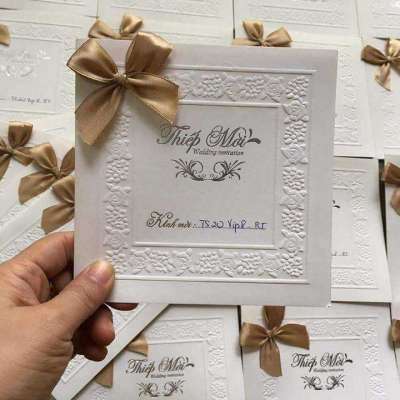 Thiếp Mời
Wedding invitation
Kính mời : TS 20 Vip 8 - RI
Thiếp Mời
Wedding invitation
Thiếp Mời
Wedding invitation